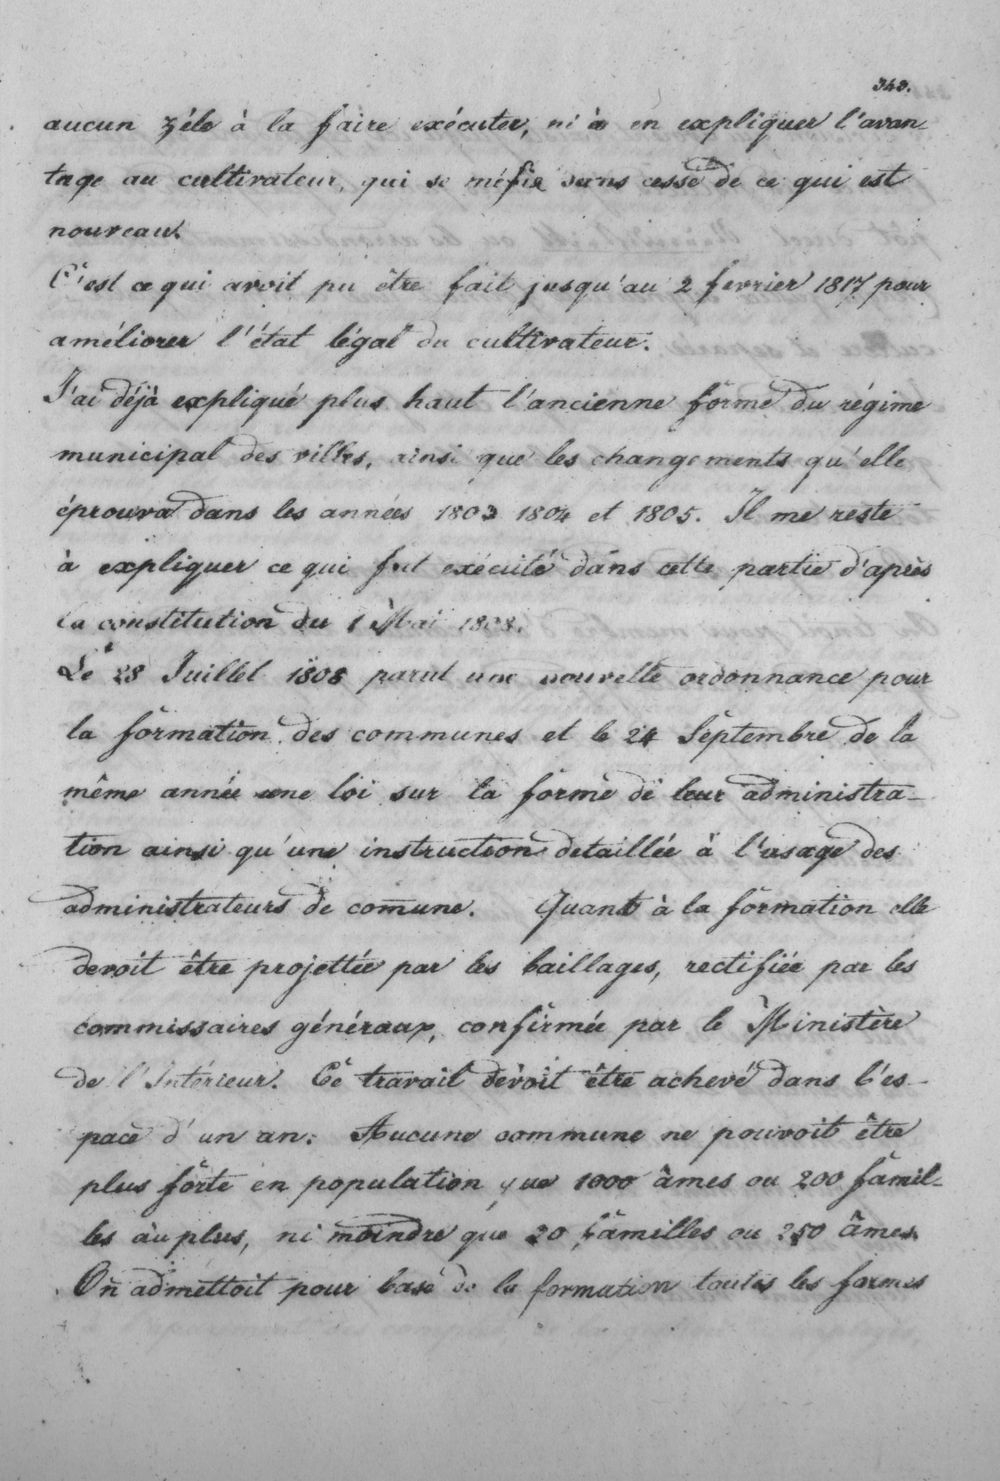 343.
aucun zéle à la faire exécuter, ni à en expliquer l'avan
tage au cultivateur, qui se méfie sans cesse de ce qui est
nouveau.
C'est ce qui avoit pu être fait jusqu'au 2 fevrier 1817 pour
améliorer l'état légal du cultivateur.
J'ai déjà expliqué plus haut l'ancienne forme du régime
municipal des villes, ainsi que les changements qu'elle
éprouva dans les années 1803 1804 et 1805. Il me reste
à expliquer ce qui fut exécuté dans cette partie d'après
la constitution du 1 Mai 1808.
Le 28 Juillet 1808 parut une nouvelle ordonnance pour
la formation des communes et le 24 Septembre de la
même année une loi sur la forme de leur administra-
tion ainsi qu'une instruction detaillée à l'usage des
administrateurs de comune. Quant à la formation elle
devoit être projettée par les baillages, rectifiée par les
commissaires généraux, confirmée par le Ministère
de l'Intérieur. Ce travail devoit être achevé dans l'es-
pace d'un an. Aucune commune ne pouvoit être
plus forte en population que 1000 âmes ou 200 famil-
les au plus, ni moindre que 20 familles ou 250 âmes.
On admettoit pour base de la formation toutes les formes